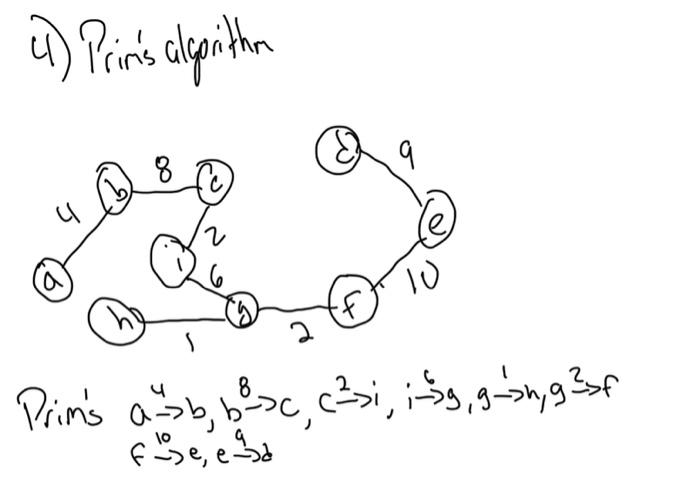 4) Prim's algorithm
d 9
b 8 c
4
e
2
i
a
6
10
h g f
1 2
Prim's a 4→ b, b 8→ c, c 2→ i, i 6→ g, g 1→ h, g 2→ f
f 10→ e, e 9→ d